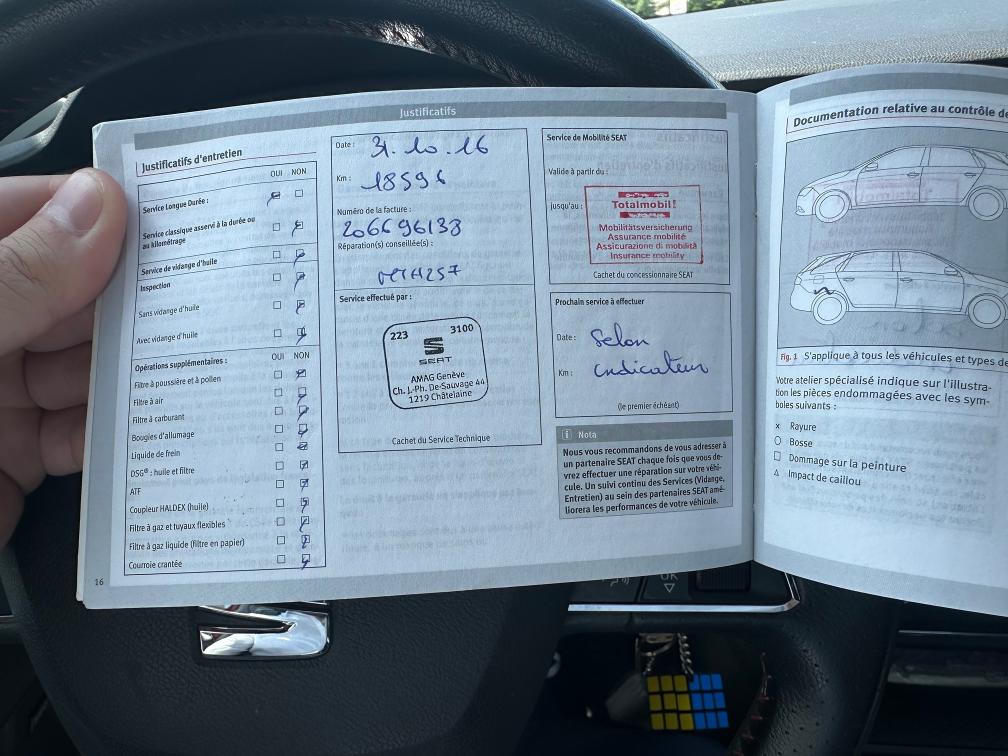 Justificatifs
Justificatifs d'entretien
OUI NON
Service Longue Durée :
Service classique asservi à la durée ou
au kilométrage
Service de vidange d'huile
Inspection
Sans vidange d'huile
Avec vidange d'huile
Opérations supplémentaires : OUI NON
Filtre à poussière et à pollen
Filtre à air
Filtre à carburant
Bougies d'allumage
Liquide de frein
DSG® : huile et filtre
ATF
Coupleur HALDEX (huile)
Filtre à gaz et tuyaux flexibles
Filtre à gaz liquide (filtre en papier)
Courroie crantée
16
Date : 31.10.16
Km : 18596
Numéro de la facture :
206696133
Réparation(s) conseillée(s) :
Service effectué par :
223 3100
SEAT
AMAG Genève
Ch. J.-Ph. De-Sauvage 44
1219 Châtelaine
Cachet du Service Technique
Service de Mobilité SEAT
Valide à partir du :
jusqu'au :
Totalmobil!
Mobilitätsversicherung
Assurance mobilité
Assicurazione di mobilità
Insurance mobility
Cachet du concessionnaire SEAT
Prochain service à effectuer
Date : Selon
Km : indicateur
(le premier échéant)
i Nota
Nous vous recommandons de vous adresser à
un partenaire SEAT chaque fois que vous de-
vrez effectuer une réparation sur votre véhi-
cule. Un suivi continu des Services (Vidange,
Entretien) au sein des partenaires SEAT amé-
liorera les performances de votre véhicule.
Documentation relative au contrôle de
Fig. 1 S'applique à tous les véhicules et types de
Votre atelier spécialisé indique sur l'illustra-
tion les pièces endommagées avec les sym-
boles suivants :
x Rayure
○ Bosse
□ Dommage sur la peinture
△ Impact de caillou
OK